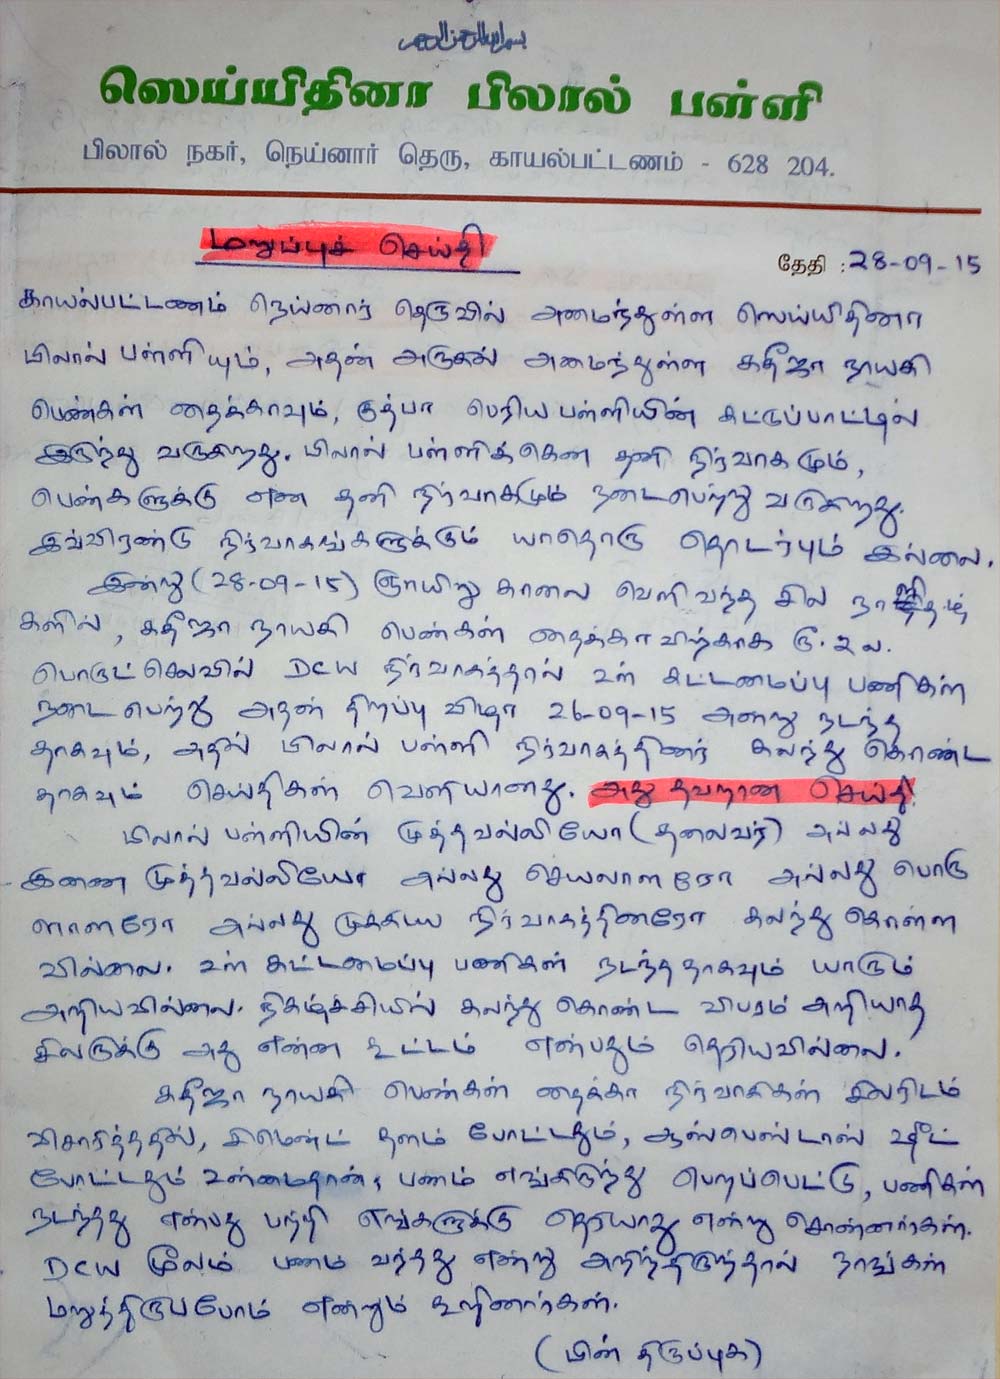 بسم الله الرحمن الرحيم
ஸெய்யிதினா பிலால் பள்ளி
பிலால் நகர், நெய்னார் தெரு, காயல்பட்டணம் - 628 204.
மறுப்புச் செய்தி
தேதி : 28-09-15
காயல்பட்டணம் நெய்னார் தெருவில் அமைந்துள்ள ஸெய்யிதினா
பிலால் பள்ளியும், அதன் அருகில் அமைந்துள்ள கதீஜா நாயகி
பெண்கள் தைக்காவும், குத்பா பெரிய பள்ளியின் கட்டுப்பாட்டில்
இருந்து வருகிறது. பிலால் பள்ளிக்கென தனி நிர்வாகமும்,
பெண்களுக்கு என தனி நிர்வாகமும் நடைபெற்று வருகிறது.
இவ்விரண்டு நிர்வாகங்களுக்கும் யாதொரு தொடர்பும் இல்லை.
இன்று (28-09-15) ஞாயிறு காலை வெளிவந்த சில நாளிதழ்
களில், கதீஜா நாயகி பெண்கள் தைக்காவிற்காக ரூ. 2 ல.
பொருட்செலவில் DCW நிர்வாகத்தால் உள் கட்டமைப்பு பணிகள்
நடைபெற்று அதன் திறப்பு விழா 26-09-15 அன்று நடந்த
தாகவும், அதில் பிலால் பள்ளி நிர்வாகத்தினர் கலந்து கொண்ட
தாகவும் செய்திகள் வெளியானது. அது தவறான செய்தி
பிலால் பள்ளியின் முத்தவல்லியோ (தலைவர்) அல்லது
இணை முத்தவல்லியோ அல்லது செயலாளரோ அல்லது பொரு
ளாளரோ அல்லது முக்கிய நிர்வாகத்தினரோ கலந்து கொள்ள
வில்லை. உள் கட்டமைப்பு பணிகள் நடந்ததாகவும் யாரும்
அறியவில்லை. நிகழ்ச்சியில் கலந்து கொண்ட விபரம் அறியாத
சிலருக்கு அது என்ன கூட்டம் என்பதும் தெரியவில்லை.
கதீஜா நாயகி பெண்கள் தைக்கா நிர்வாகிகள் சிலரிடம்
விசாரித்ததில், சிமெண்ட் தளம் போட்டதும், ஆஸ்பெஸ்டாஸ் ஷீட்
போட்டதும் உண்மைதான், பணம் எங்கிருந்து பெறப்பெட்டு, பணிகள்
நடந்தது என்பது பற்றி எங்களுக்கு தெரியாது என்று சொன்னார்கள்.
DCW மூலம் பணம் வந்தது என்று அறிந்திருந்தால் நாங்கள்
மறுத்திருப்போம் என்றும் கூறினார்கள்.
(பின் திருப்புக)